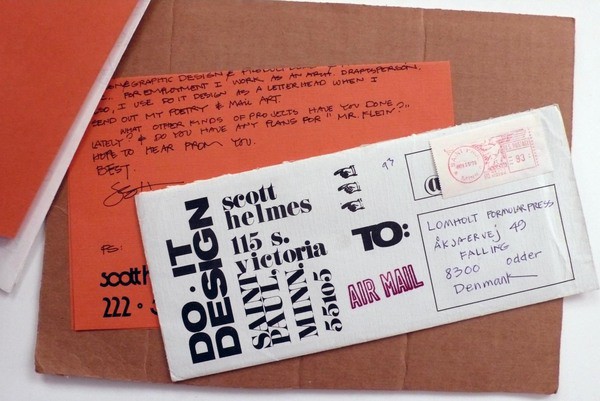 DESIGN & PRODUCT DESIGN &
FOR EMPLOYMENT I WORK AS AN ARCH. DRAFTSPERSON.
I USE DO IT DESIGN AS A LETTERHEAD WHEN I
SEND OUT MY POETRY & MAIL ART.
WHAT OTHER KINDS OF PROJECTS HAVE YOU DONE
LATELY? & DO YOU HAVE ANY PLANS FOR "MR. KLEIN?"
HOPE TO HEAR FROM YOU.
BEST,
Scott
PS:
scott h
222 • 
DO • IT
DESIGN
scott
helmes
115 s.
victoria
SAINT
PAUL,
MINN.
55105
TO:
AIR MAIL
@
93
LOMHOLT FORMULARPRESS
ÅKJAERVEJ 49
FALLING
8300 odder
Denmark